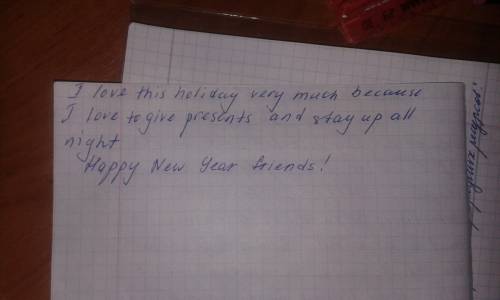 I love this holiday very much because
I love to give presents and stay up all
night
Happy New Year friends!